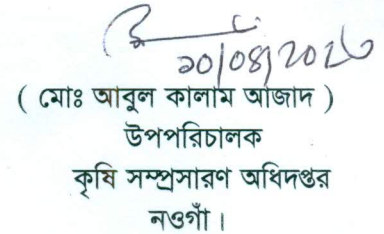 ( মোঃ আবুল কালাম আজাদ )
উপপরিচালক
কৃষি সম্প্রসারণ অধিদপ্তর
নওগাঁ।